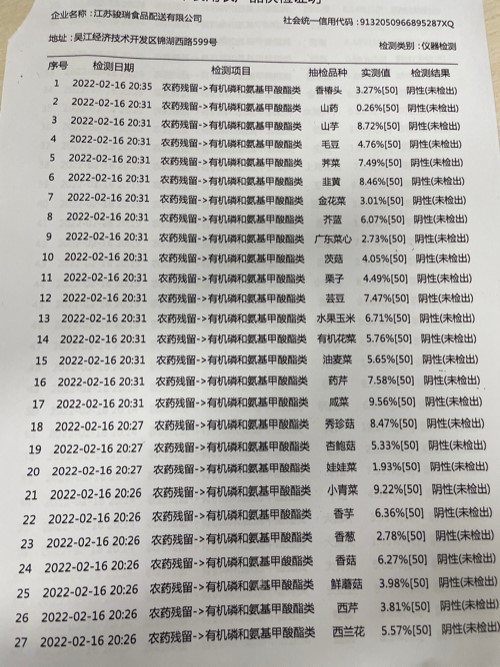 企业名称：江苏骏瑞食品配送有限公司
社会统一信用代码：9132050966895287XQ
地址：吴江经济技术开发区锦湖西路599号
检测类别：仪器检测
序号 检测日期 检测项目 抽检品种 实测值 检测结果
1 2022-02-16 20:35 农药残留->有机磷和氨基甲酸酯类 香椿头 3.27%[50] 阴性(未检出)
2 2022-02-16 20:31 农药残留->有机磷和氨基甲酸酯类 山药 0.26%[50] 阴性(未检出)
3 2022-02-16 20:31 农药残留->有机磷和氨基甲酸酯类 山芋 8.72%[50] 阴性(未检出)
4 2022-02-16 20:31 农药残留->有机磷和氨基甲酸酯类 毛豆 4.76%[50] 阴性(未检出)
5 2022-02-16 20:31 农药残留->有机磷和氨基甲酸酯类 荠菜 7.49%[50] 阴性(未检出)
6 2022-02-16 20:31 农药残留->有机磷和氨基甲酸酯类 韭黄 8.46%[50] 阴性(未检出)
7 2022-02-16 20:31 农药残留->有机磷和氨基甲酸酯类 金花菜 3.01%[50] 阴性(未检出)
8 2022-02-16 20:31 农药残留->有机磷和氨基甲酸酯类 芥蓝 6.07%[50] 阴性(未检出)
9 2022-02-16 20:31 农药残留->有机磷和氨基甲酸酯类 广东菜心 2.73%[50] 阴性(未检出)
10 2022-02-16 20:31 农药残留->有机磷和氨基甲酸酯类 茨菇 4.05%[50] 阴性(未检出)
11 2022-02-16 20:31 农药残留->有机磷和氨基甲酸酯类 栗子 4.49%[50] 阴性(未检出)
12 2022-02-16 20:31 农药残留->有机磷和氨基甲酸酯类 芸豆 7.47%[50] 阴性(未检出)
13 2022-02-16 20:31 农药残留->有机磷和氨基甲酸酯类 水果玉米 6.71%[50] 阴性(未检出)
14 2022-02-16 20:31 农药残留->有机磷和氨基甲酸酯类 有机花菜 5.76%[50] 阴性(未检出)
15 2022-02-16 20:31 农药残留->有机磷和氨基甲酸酯类 油麦菜 5.65%[50] 阴性(未检出)
16 2022-02-16 20:31 农药残留->有机磷和氨基甲酸酯类 药芹 7.58%[50] 阴性(未检出)
17 2022-02-16 20:31 农药残留->有机磷和氨基甲酸酯类 咸菜 9.56%[50] 阴性(未检出)
18 2022-02-16 20:27 农药残留->有机磷和氨基甲酸酯类 秀珍菇 8.47%[50] 阴性(未检出)
19 2022-02-16 20:27 农药残留->有机磷和氨基甲酸酯类 杏鲍菇 5.33%[50] 阴性(未检出)
20 2022-02-16 20:27 农药残留->有机磷和氨基甲酸酯类 娃娃菜 1.93%[50] 阴性(未检出)
21 2022-02-16 20:26 农药残留->有机磷和氨基甲酸酯类 小青菜 9.22%[50] 阴性(未检出)
22 2022-02-16 20:26 农药残留->有机磷和氨基甲酸酯类 香芋 6.36%[50] 阴性(未检出)
23 2022-02-16 20:26 农药残留->有机磷和氨基甲酸酯类 香葱 2.78%[50] 阴性(未检出)
24 2022-02-16 20:26 农药残留->有机磷和氨基甲酸酯类 香菇 6.27%[50] 阴性(未检出)
25 2022-02-16 20:26 农药残留->有机磷和氨基甲酸酯类 鲜蘑菇 3.98%[50] 阴性(未检出)
26 2022-02-16 20:26 农药残留->有机磷和氨基甲酸酯类 西芹 3.81%[50] 阴性(未检出)
27 2022-02-16 20:26 农药残留->有机磷和氨基甲酸酯类 西兰花 5.57%[50] 阴性(未检出)